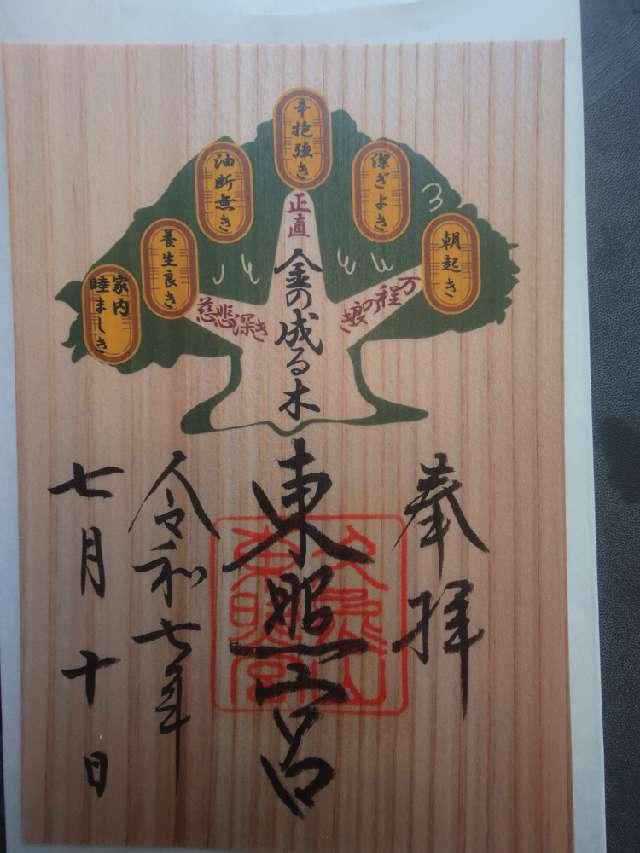 朝起き
潔ぎよき
辛抱強き
油断無き
養生良き
家内
睦ましき
正直
慈悲深き
万程の
金の成る木
奉拝
東照宮
令和七年
七月十日